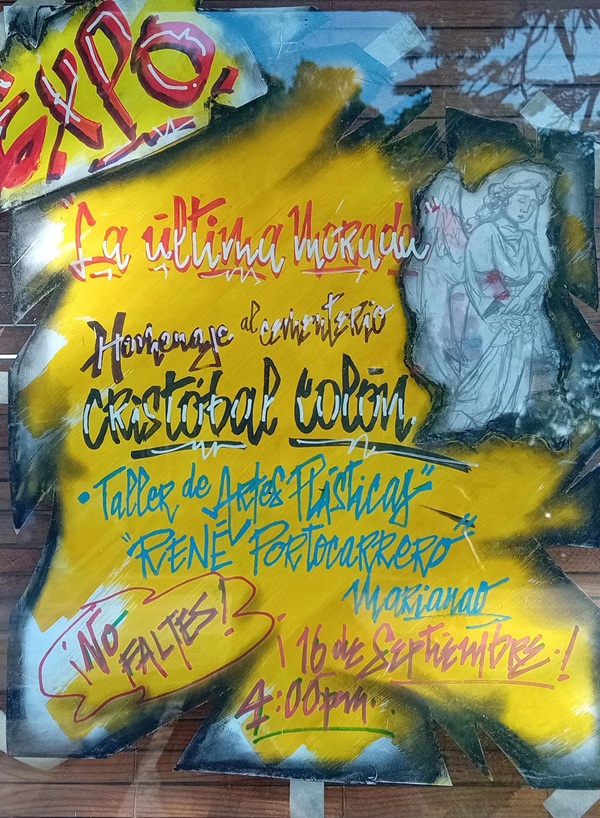 EXPO.
"La última Morada"
Homenaje al cementerio
CRistóbal Colón.
• Taller de Artes Plásticas
"RENÉ PORTOCARRERO"
Marianao
¡NO FALTES!
¡16 de Septiembre!
4:00pm.